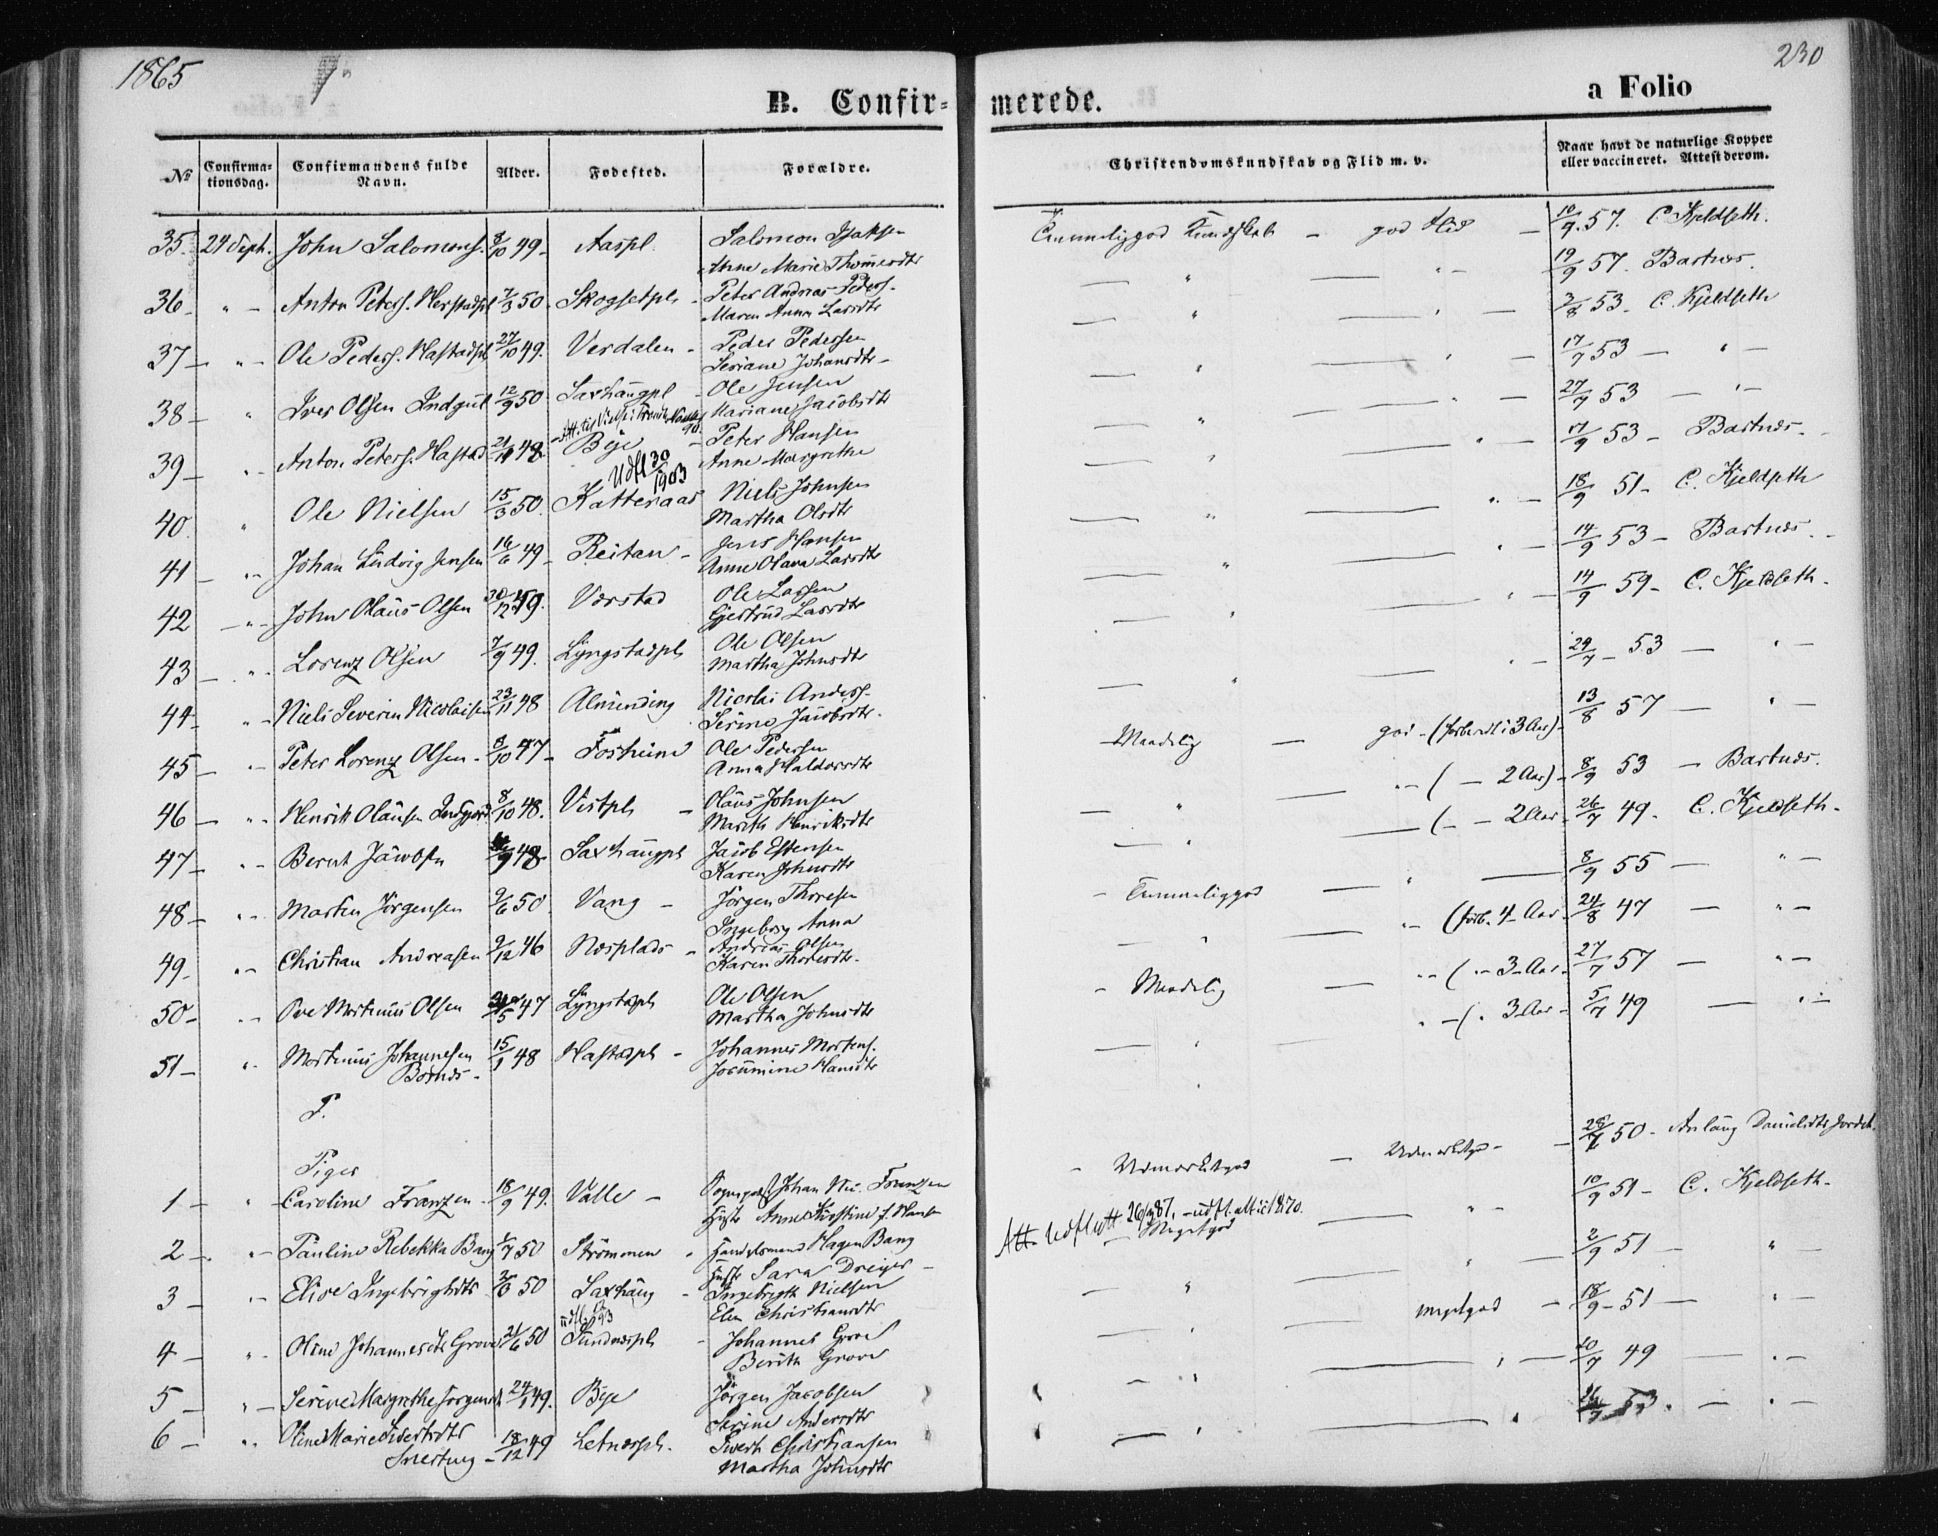 1865
230
B. Confirmerede.
a Folio
№ Confirmationsdag. Confirmandens fulde Navn. Alder. Fødested. Forældre. Christendomskundskab og Flid m. v. Naar havt de naturlige Kopper eller vaccineret. Attest derom.
35 24 Sept. John Salomons. 8/10 49 Aaspl. Salomon Isaksen Anne Marie god Flid 10/9 57. C. Kjeldseth.
36 " Anton Peters. 7/3 50 Skogsetpl. Peter Andreas Peders. Maren Anna Larsdtr " 19/9 57. Bartnæs.
37 " Ole Peders. Hastadpl. 27/10 49. Verdalen Peder Pedersen Johansdtr " 2/8 53. C. Kjeldseth
38 " Iver Olsen 12/9 50 Saxhaugpl Ole Jensen Mariane Jacobsdtr " 17/7 53 "
39 " Anton Peters. Hastad 21/11 48 Bye Peter Hansen Anne Margrethe " 27/7 53 "
Udfl 30/1903
40 " Ole Nielsen 15/3 50. Katteraas Niels Johnsen Martha Olsdtr " 17/9 53 Bartnæs.
41 " Johan Ludvig Jensen 16/6 49 Reitan Jens Hansen Anne Olava Larsdtr " 18/9 51 C. Kjeldseth
42 " John Olaus Olsen 30/12 49. Værstad Ole Larsen Gjertrud Larsdtr " 14/9 53 Bartnæs.
43 " Lorenz Olsen 7/9 49. Lyngstadpl Ole Olsen Martha Johnsdtr " 14/9 59 C. Kjeldseth.
44 " Niels Severin Nicolaisen 23/11 48 Alminding Nicolai Anders. Serine Jacobsdtr. " 29/7 53 "
45 " Peter Lorenz Olsen 8/10 47 Fosheim Ole Pedersen Anna Haldorsdtr Maadelig god (forberedt i 3 Aar) 13/8 57 "
46 " Henrik Olausen 8/10 48. Vistpl Olaus Johnsen Marith Henriksdtr " ( 2 Aar) 8/9 53 Bartnæs.
47 " Bernt Jacobsen /9 48 Saxhaugpl Jacob Estensen Karen Johnsdtr " ( 2 Aar 26/7 49. C. Kjeldseth.
48 " Morten Jörgensen 9/6 50. Vang Jörgen Thoresen Ingeborg Anna Temmeliggod " 8/9 55 "
49 " Christian Andreasen 9/12 46 Næsplads Andreas Olsen Karen Thoresdtr. " (forb. 4 Aar 24/8 47 "
50 " Ove Martinus Olsen /5 47 Lyngstadpl Ole Olsen Martha Johnsdtr Maadelig " ( " 3 Aar 27/7 57 "
51 " Martinus Johannesen Bartnæs 15/1 48 Hastadpl Johannes Mortens. Hansdtr " " ( " 3 Aar 5/7 49 "
P.
Piger
1 " Caroline Franzen 18/9 49. Valle Johan Nic. Franzen Hustr Anne Kirstine f. Udmærketgod Udmærketgod 28/7 50
2 " Pauline Rebekka Bang /7 50 Strömmen Handelsmand Hagen Bang Hustr Sara Dreyer Att. Udflytt 26/ 87. Megetgod " 10/9 51 C. Kjeldseth.
3 " Elise Ingebrigtsdtr 50 Saxhaug Ingebrigth Nielsen Elen Christiansdtr " " 2/9 51 "
4 " Oline Johannesdtr Grove 21/6 50 Sundnæspl Johannes Grove Berith Grove " megetgod 18/9 51 "
5 " Serine Margrethe 24/1 49. Bye Jörgen Jacobsen Serine Andersdtr " " 20/7 49 "
6 " Oline Marie Sivertsdtr 18/12 49 Letnæspl. Sivert Christiansen Martha Johnsdtr " " 53. "